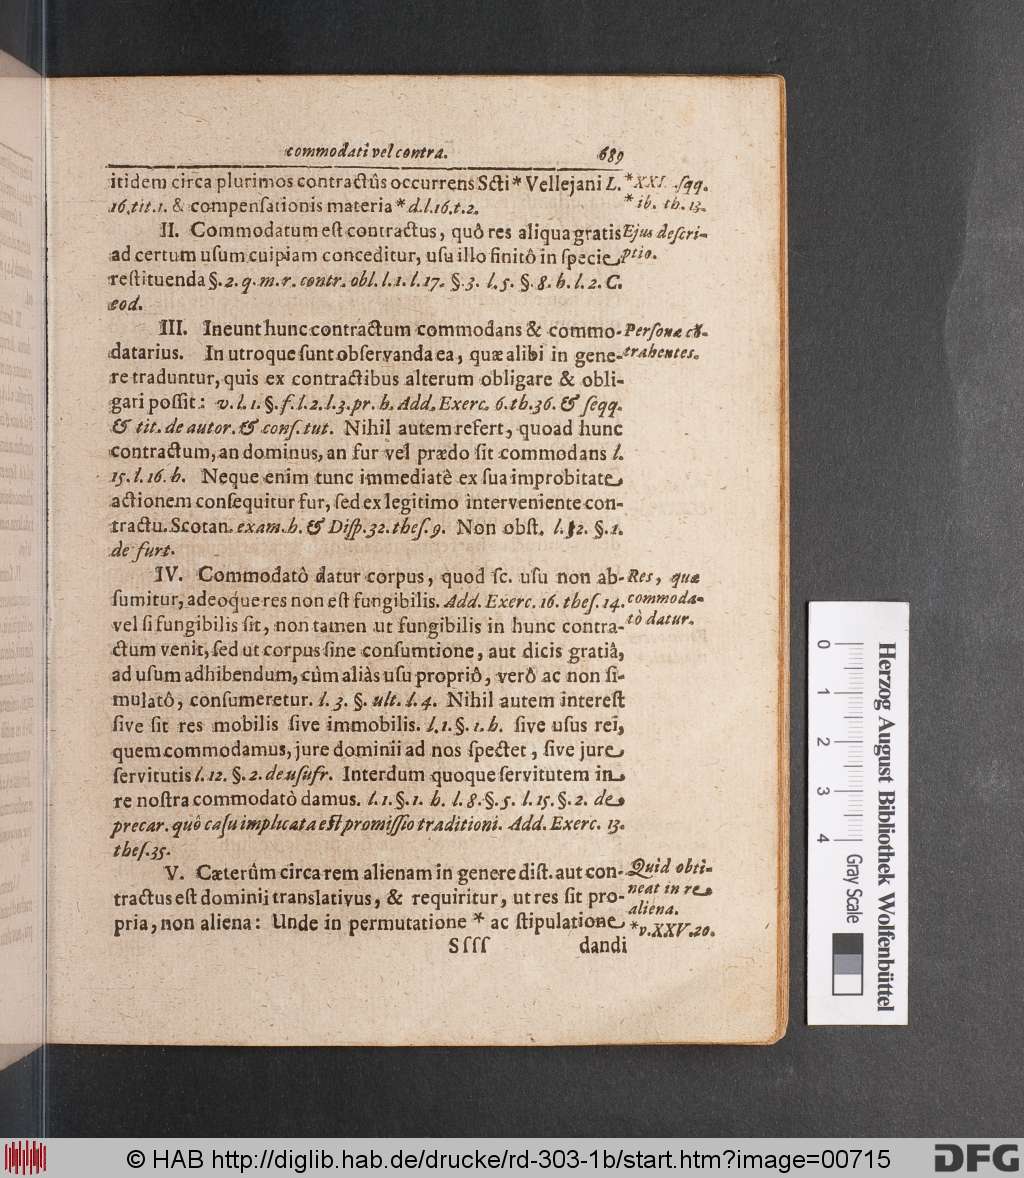 commodati vel contra. 689
itidem circa plurimos contractûs occurrens Scti* Vellejani L.
16. tit. 1. & compensationis materia * d. l. 16. t. 2.
*XXI. sqq.
* ib. th. 13.
II. Commodatum est contractus, quô res aliqua gratis
ad certum usum cuipiam conceditur, usu illo finitô in specie
restituenda §. 2. q. m. r. contr. obl. l. 1. l. 17. §. 3. l. 5. §. 8. h. l. 2. C.
eod.
Ejus descri-
ptio.
III. Ineunt hunc contractum commodans & commo-
datarius. In utroque sunt observanda ea, quæ alibi in gene-
re traduntur, quis ex contractibus alterum obligare & obli-
gari possit: v. l. 1. §. f. l. 2. l. 3. pr. h. Add. Exerc. 6. th. 36. & seqq.
& tit. de autor. & cons. tut. Nihil autem refert, quoad hunc
contractum, an dominus, an fur vel prædo sit commodans l.
15. l. 16. h. Neque enim tunc immediatè ex sua improbitate
actionem consequitur fur, sed ex legitimo interveniente con-
tractu. Scotan. exam. h. & Disp. 32. thes. 9. Non obst. l. 12. §. 1.
de furt.
Personæ cō-
trahentes.
IV. Commodatò datur corpus, quod sc. usu non ab-
sumitur, adeoque res non est fungibilis. Add. Exerc. 16. thes. 14.
vel si fungibilis sit, non tamen ut fungibilis in hunc contra-
ctum venit, sed ut corpus sine consumtione, aut dicis gratiâ,
ad usum adhibendum, cùm aliàs usu propriô, verô ac non si-
mulatô, consumeretur. l. 3. §. ult. l. 4. Nihil autem interest
sive sit res mobilis sive immobilis. l. 1. §. 1. h. sive usus rei,
quem commodamus, jure dominii ad nos spectet, sive jure
servitutis l. 12. §. 2. de usufr. Interdum quoque servitutem in
re nostra commodatò damus. l. 1. §. 1. h. l. 8. §. 5. l. 15. §. 2. de
precar. quô casu implicata est promissio traditioni. Add. Exerc. 13.
thes. 35.
Res, quæ
commoda-
tò datur.
V. Cæterûm circa rem alienam in genere dist. aut con-
tractus est dominii translativus, & requiritur, ut res sit pro-
pria, non aliena: Unde in permutatione * ac stipulatione
Quid obti-
neat in re
aliena.
*v. XXV. 20.
Ssss dandi
0 1 2 3 4
Gray Scale
Herzog August Bibliothek Wolfenbüttel
© HAB http://diglib.hab.de/drucke/rd-303-1b/start.htm?image=00715
DFG